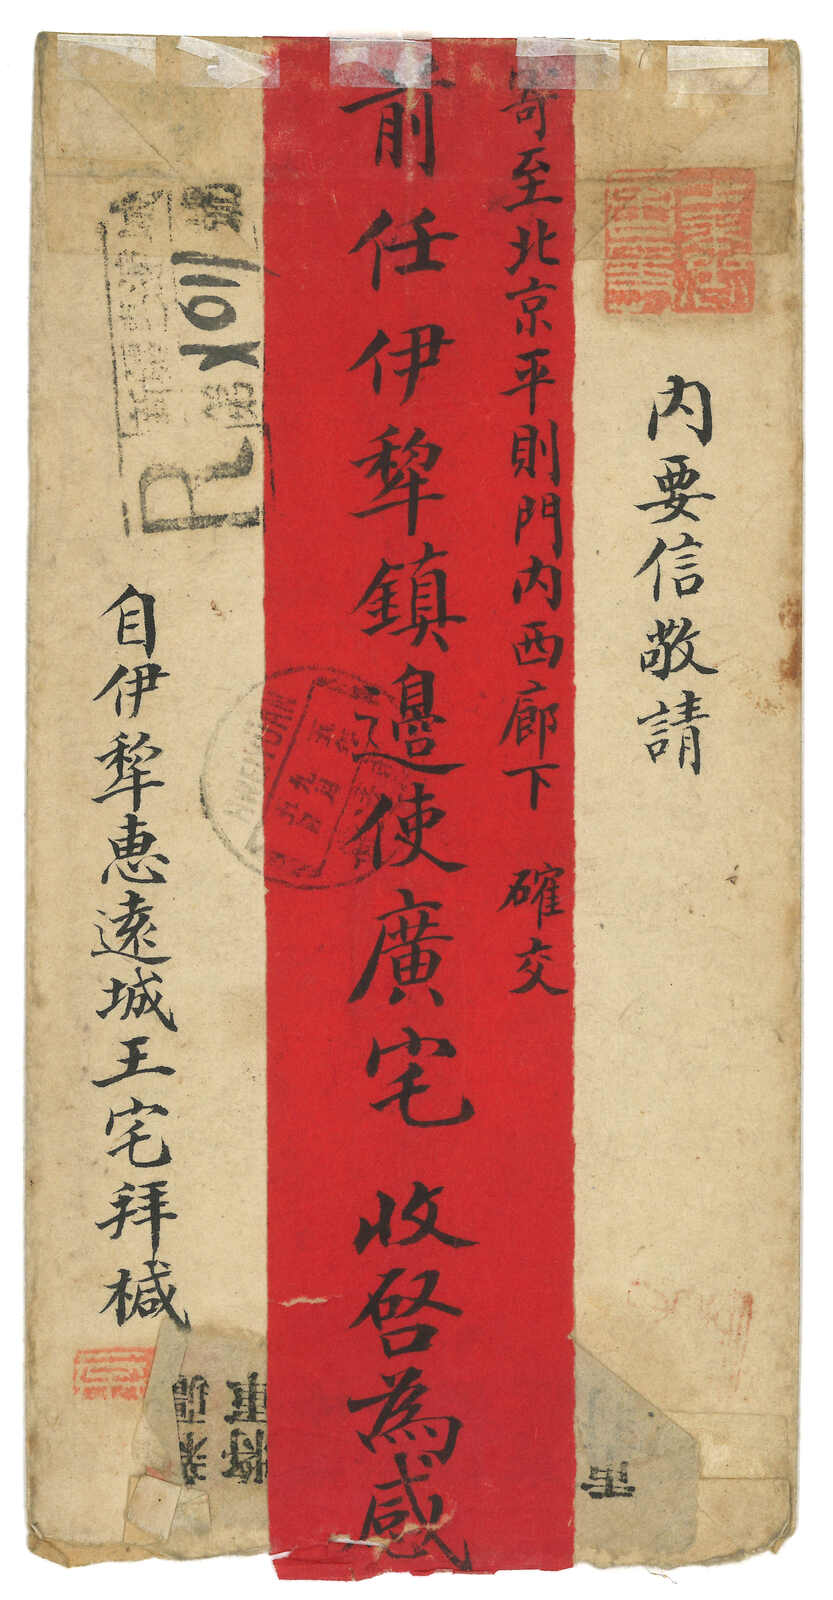 内要信敬請
寄至北京平則門内西廊下 確交
前任伊犂鎮邉使廣宅 收啓為感
自伊犂惠遠城王宅拜椷
R
第1101號